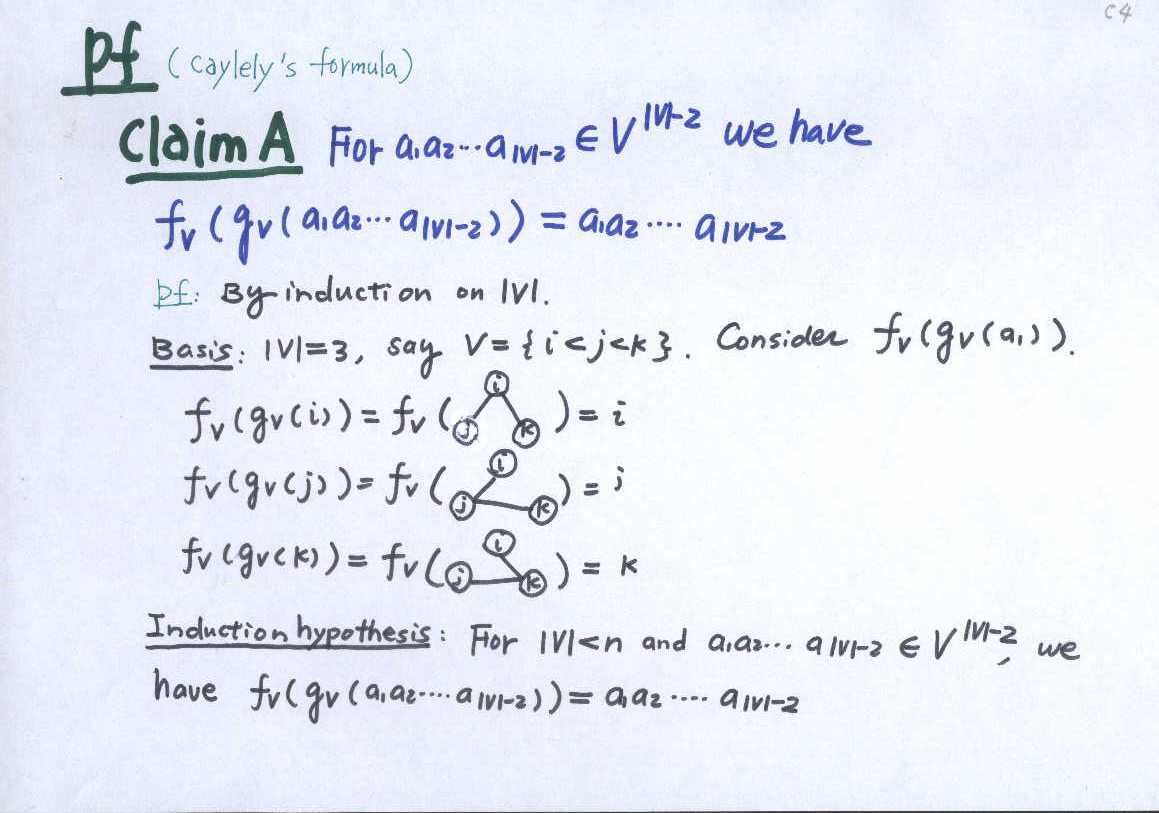 C4
Pf (Caylely's formula)
Claim A For a₁a₂...a|V|-2 ∈ V^|V|-2 we have
f_V(g_V(a₁a₂...a|V|-2)) = a₁a₂....a|V|-2
pf: By induction on |V|.
Basis: |V|=3, say V={i<j<k}. Consider f_V(g_V(a₁)).
f_V(g_V(i)) = f_V( i j k ) = i
f_V(g_V(j)) = f_V( i j k ) = j
f_V(g_V(k)) = f_V( i j k ) = k
Induction hypothesis: For |V|<n and a₁a₂...a|V|-2 ∈ V^|V|-2, we
have f_V(g_V(a₁a₂....a|V|-2)) = a₁a₂....a|V|-2